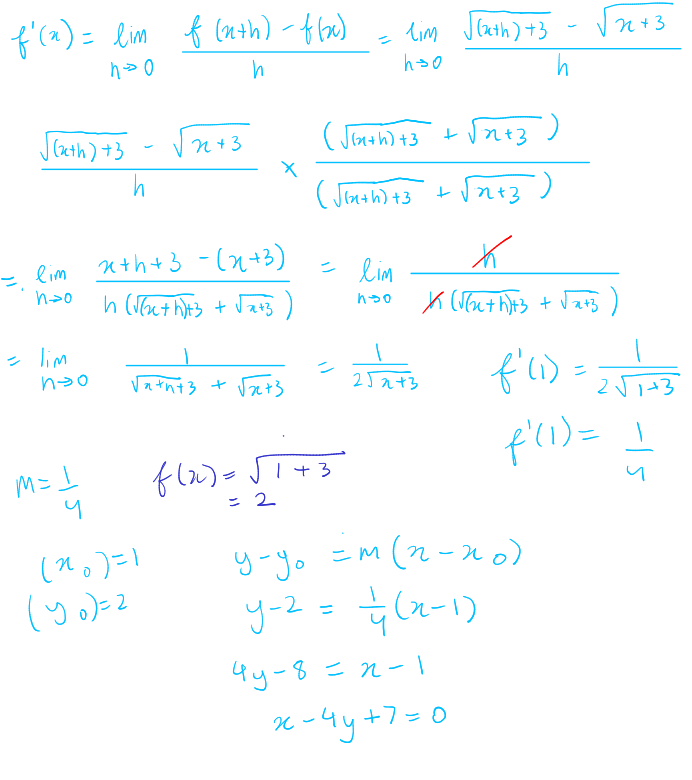 f'(x) = lim h→0 (f(x+h) - f(x))/h = lim h→0 (√((x+h)+3) - √(x+3))/h
(√((x+h)+3) - √(x+3))/h × (√((x+h)+3) + √(x+3))/(√((x+h)+3) + √(x+3))
= lim h→0 (x+h+3 - (x+3))/(h(√((x+h)+3) + √(x+3))) = lim h→0 h/(h(√((x+h)+3) + √(x+3)))
= lim h→0 1/(√(x+h+3) + √(x+3)) = 1/(2√(x+3)) f'(1) = 1/(2√(1+3))
f'(1) = 1/4
m = 1/4 f(x) = √(1+3)
= 2
(x₀) = 1 y - y₀ = m(x - x₀)
(y₀) = 2 y - 2 = 1/4 (x - 1)
4y - 8 = x - 1
x - 4y + 7 = 0